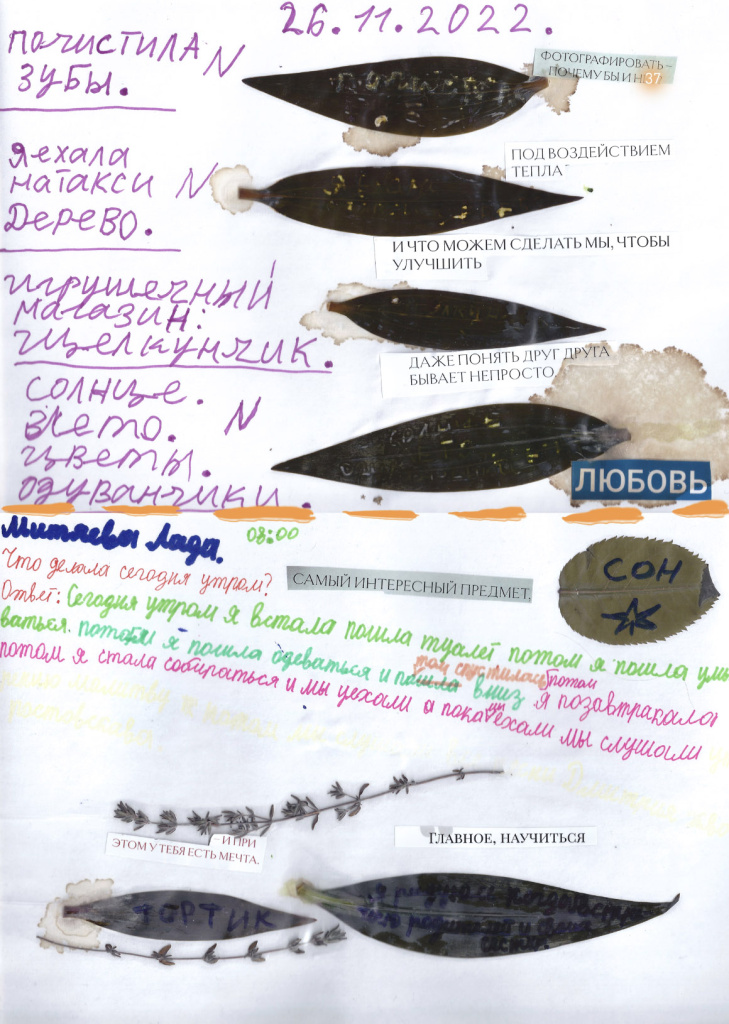 26.11.2022.
ПОЧИСТИЛА N
ЗУБЫ.
ФОТОГРАФИРОВАТЬ –
ПОЧЕМУ БЫ И Н 37
Я ЕХАЛА
НА ТАКСИ N
ДЕРЕВО.
ПОД ВОЗДЕЙСТВИЕМ
ТЕПЛА
И ЧТО МОЖЕМ СДЕЛАТЬ МЫ, ЧТОБЫ
УЛУЧШИТЬ
ИГРУШЕЧНЫЙ
МАГАЗИН:
ЩЕЛКУНЧИК.
ДАЖЕ ПОНЯТЬ ДРУГ ДРУГА
БЫВАЕТ НЕПРОСТО
СОЛНЦЕ.
ЛЕТО. N
ЦВЕТЫ.
ОДУВАНЧИКИ.
ЛЮБОВЬ
Митяева Лада.
08:00
Что делала сегодня утром?
САМЫЙ ИНТЕРЕСНЫЙ ПРЕДМЕТ,
СОН
Ответ: Сегодня утром я встала пошла туалет потом я пошла умы
ваться. потом я пошла одеваться и пошла там спустилась вниз потом я позавтракала
потом я стала собираться и мы уехали а пока мы ехали мы слушали
– И ПРИ
ЭТОМ У ТЕБЯ ЕСТЬ МЕЧТА.
ГЛАВНОЕ, НАУЧИТЬСЯ
ТОРТИК